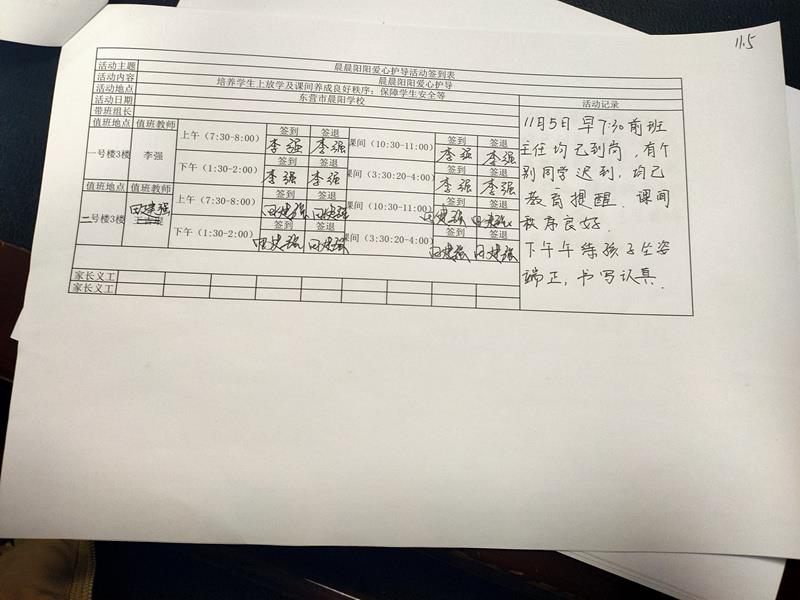 11.5
活动主题 晨晨阳阳爱心护导活动签到表
活动内容 晨晨阳阳爱心护导
活动地点 培养学生上放学及课间养成良好秩序；保障学生安全等
活动日期 东营市晨阳学校
带班组长 活动记录
值班地点 值班教师 上午（7:30-8:00） 签到 签退 课间（10:30-11:00） 签到 签退
李强 李强 李强 李强
一号楼3楼 李强 下午（1:30-2:00） 签到 签退 课间（3:30:20-4:00） 签到 签退
李强 李强 李强 李强
值班地点 值班教师 上午（7:30-8:00） 签到 签退 课间（10:30-11:00） 签到 签退
田建强 田建强 田建强 田建强
二号楼3楼 田建强 下午（1:30-2:00） 签到 签退 课间（3:30:20-4:00） 签到 签退
田建强 田建强 田建强 田建强
家长义工
家长义工
11月5日早7:30前班
主任均已到岗，有个
别同学迟到，均已
教育提醒．课间
秩序良好．
下午午练孩子坐姿
端正，书写认真．